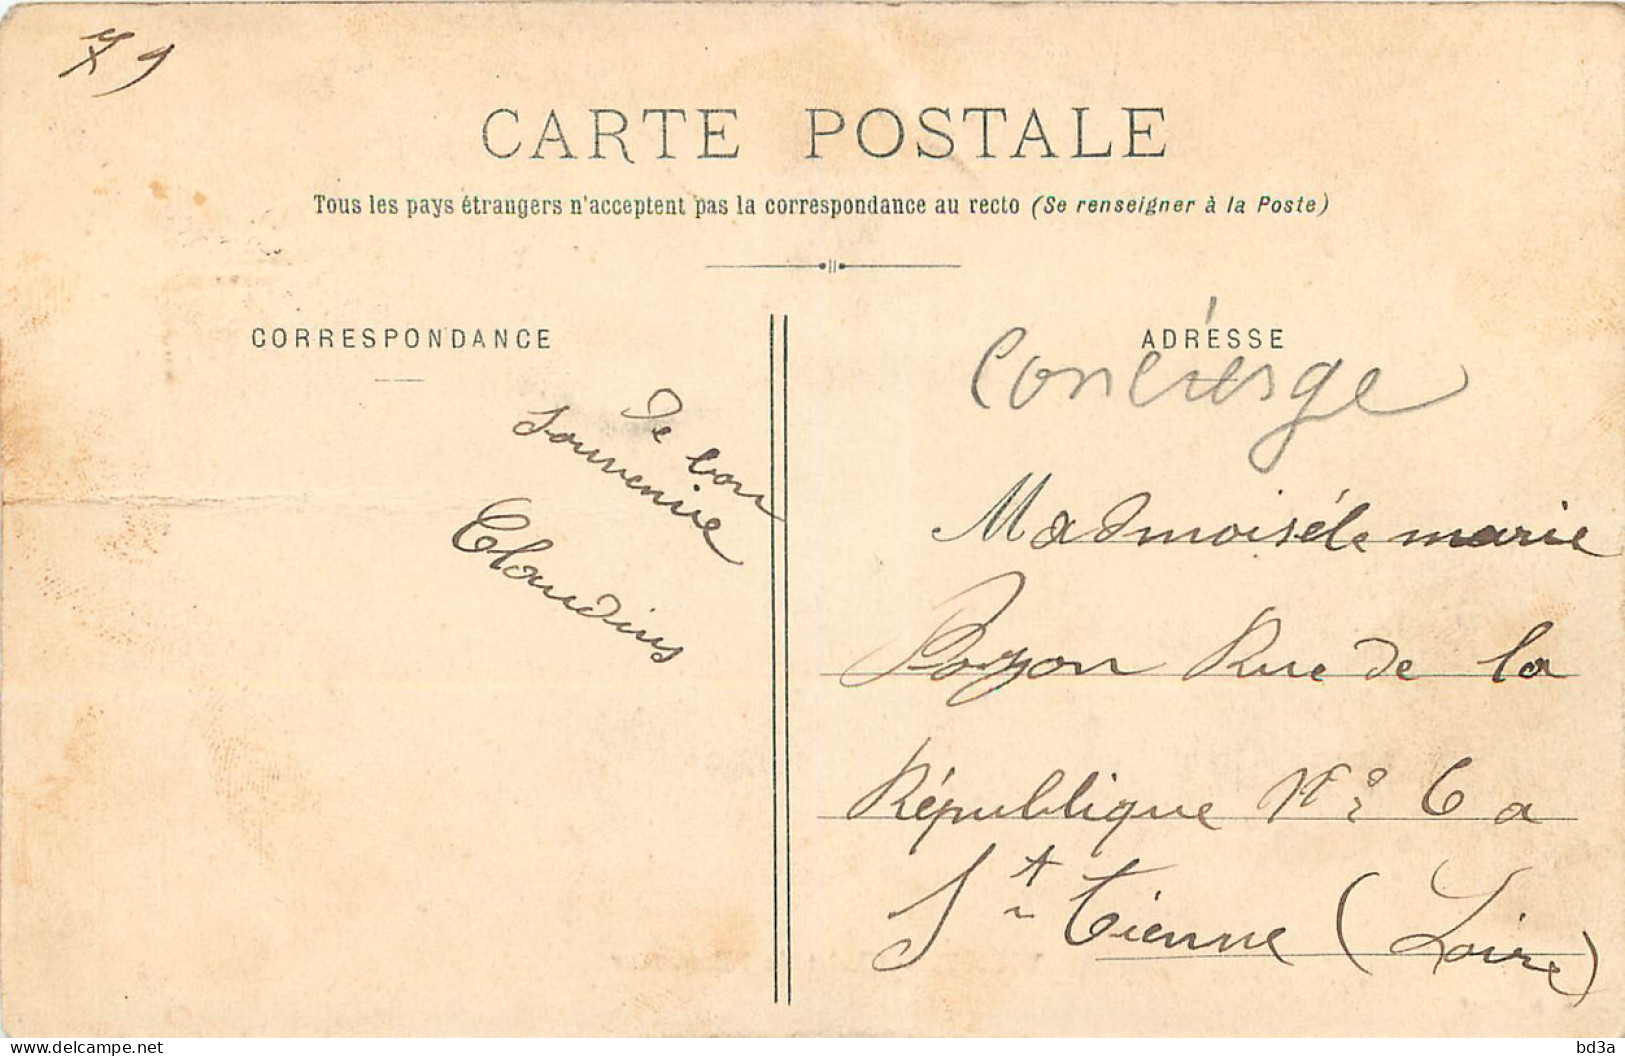 79
CARTE POSTALE
Tous les pays étrangers n'acceptent pas la correspondance au recto (Se renseigner à la Poste)
CORRESPONDANCE
De bon
souvenire
Claudius
ADRESSE
Concierge
Madmoiséle marie
Poyon Rue de la
République N° 6 a
St tienne (Loire)
delcampe.net
bd3a